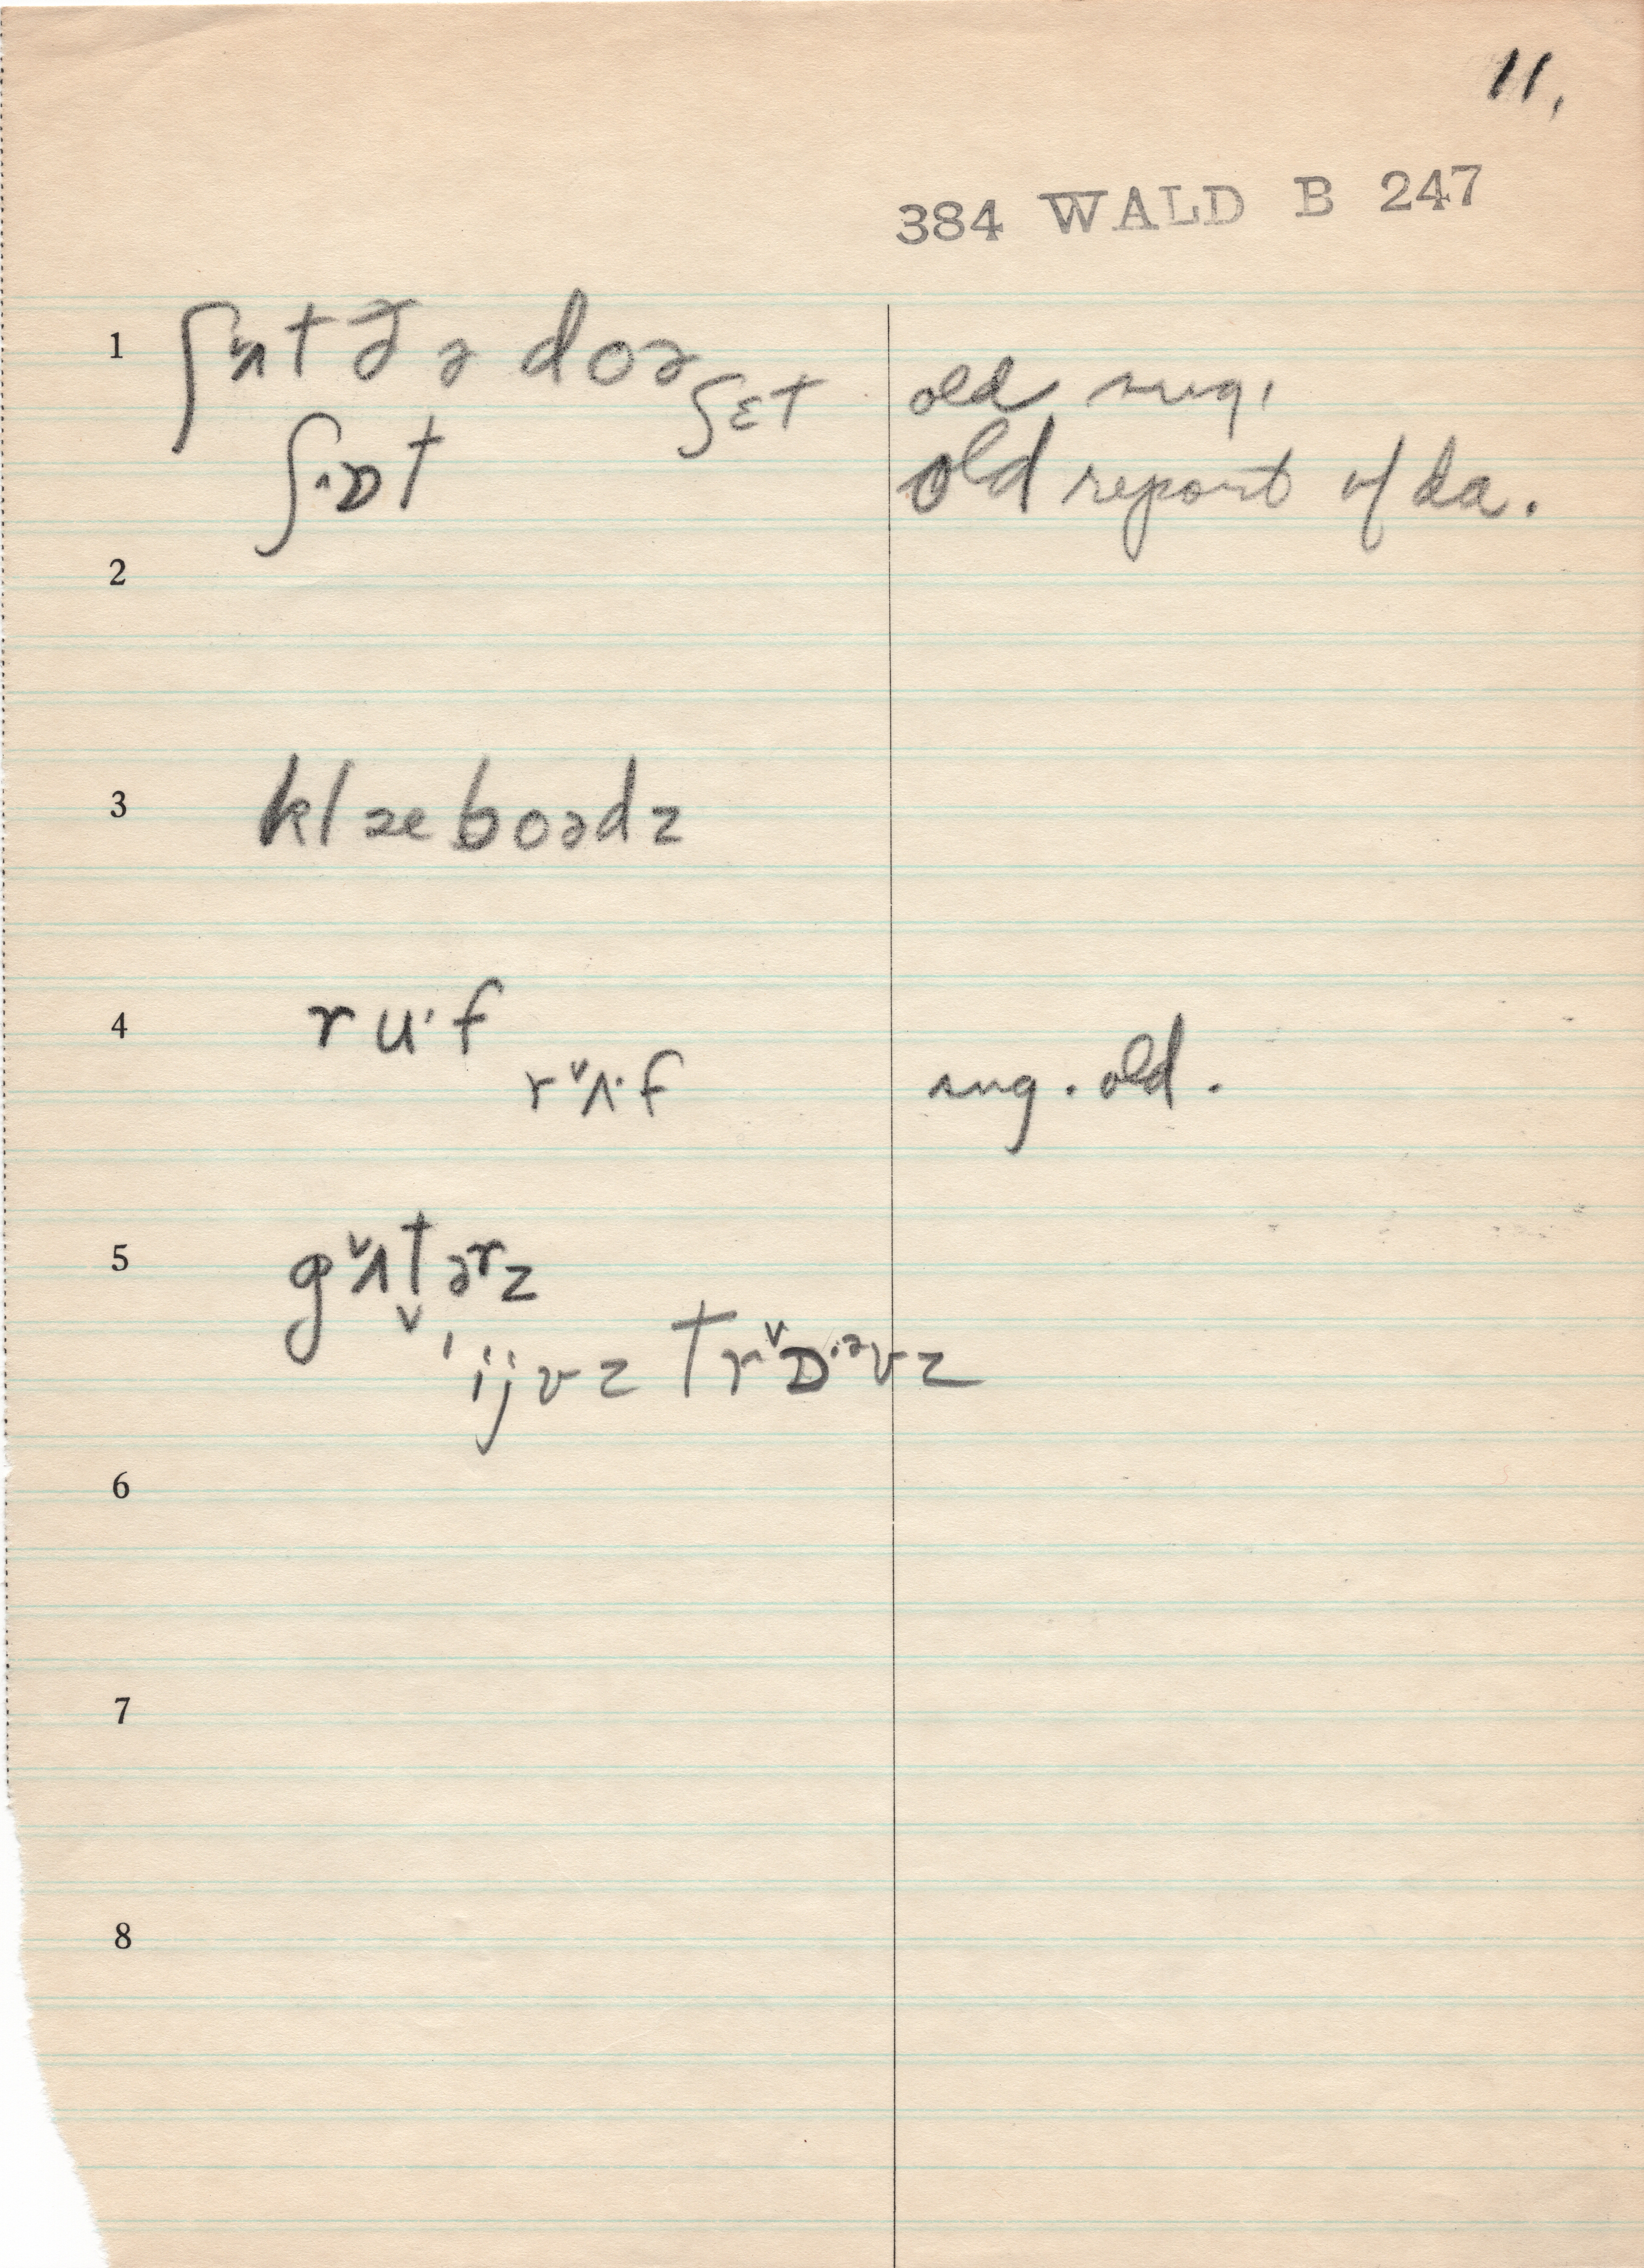 11.
384 WALD B 247
1 ʃʌt ðə doə ʃɛt old sug.
ʃɒt old report of da.
2
3 klæboədz
4 ru·f
rᵛʌ·f sug. old.
5 gᵛʌt̬ərz
ijvz trᵛɒ·ᵊvz
6
7
8